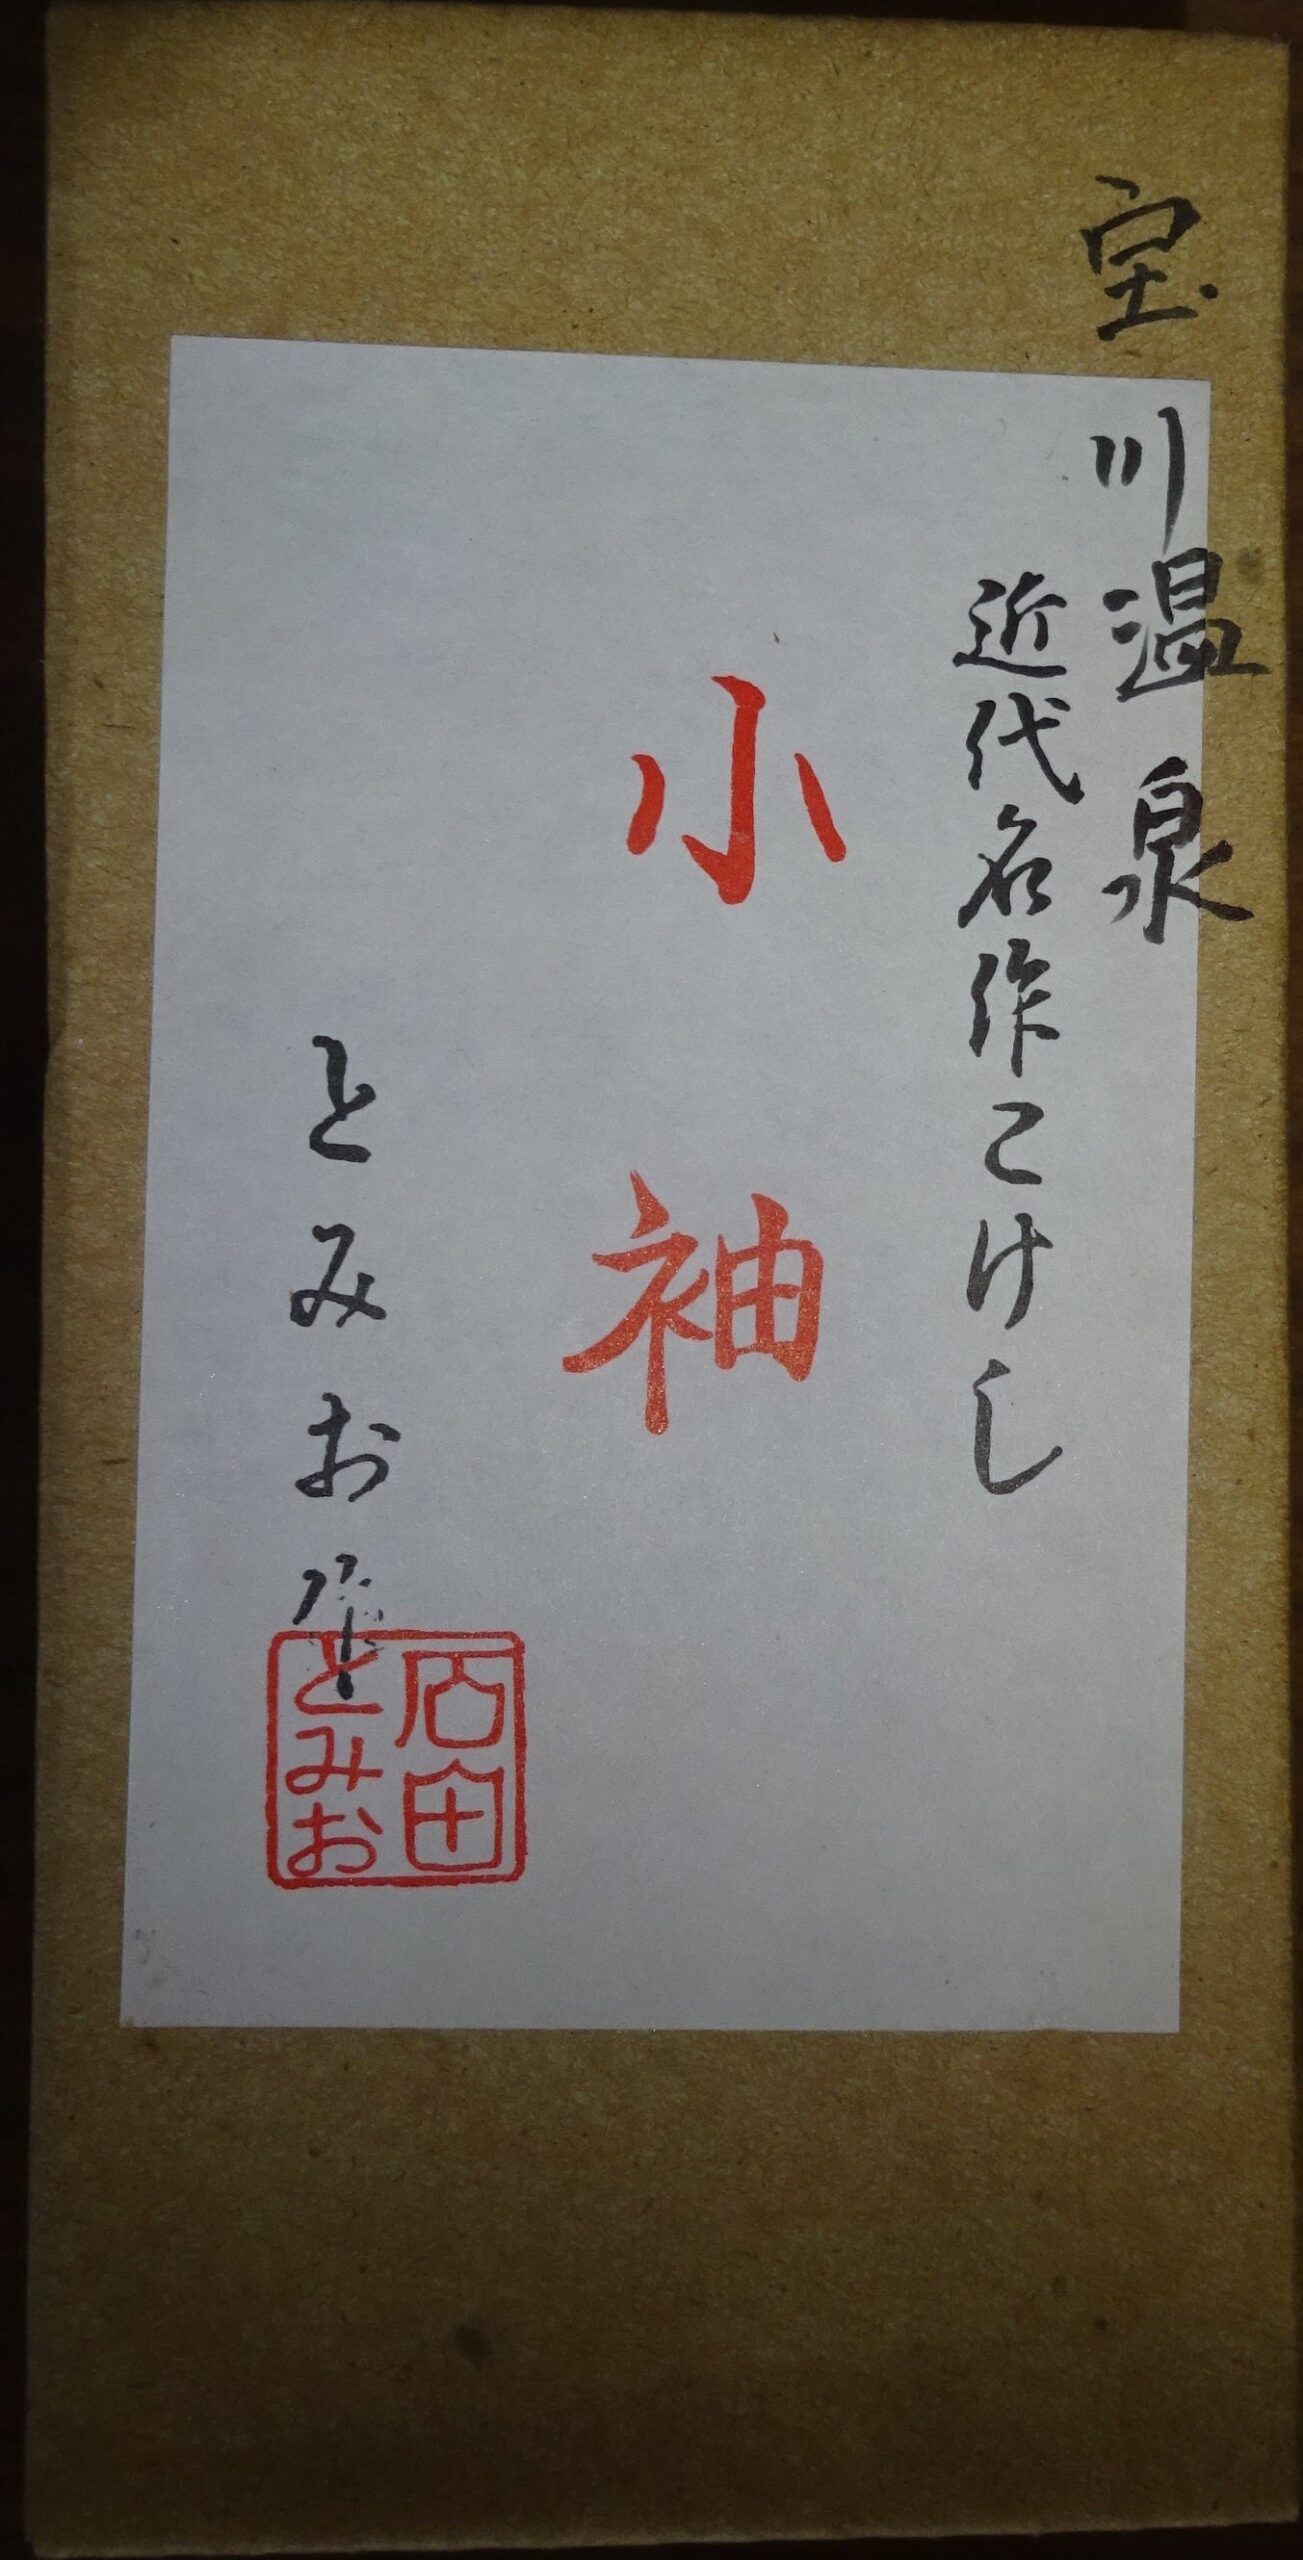 宝川温泉
近代名作こけし
小袖
とみお作
石田
とみお